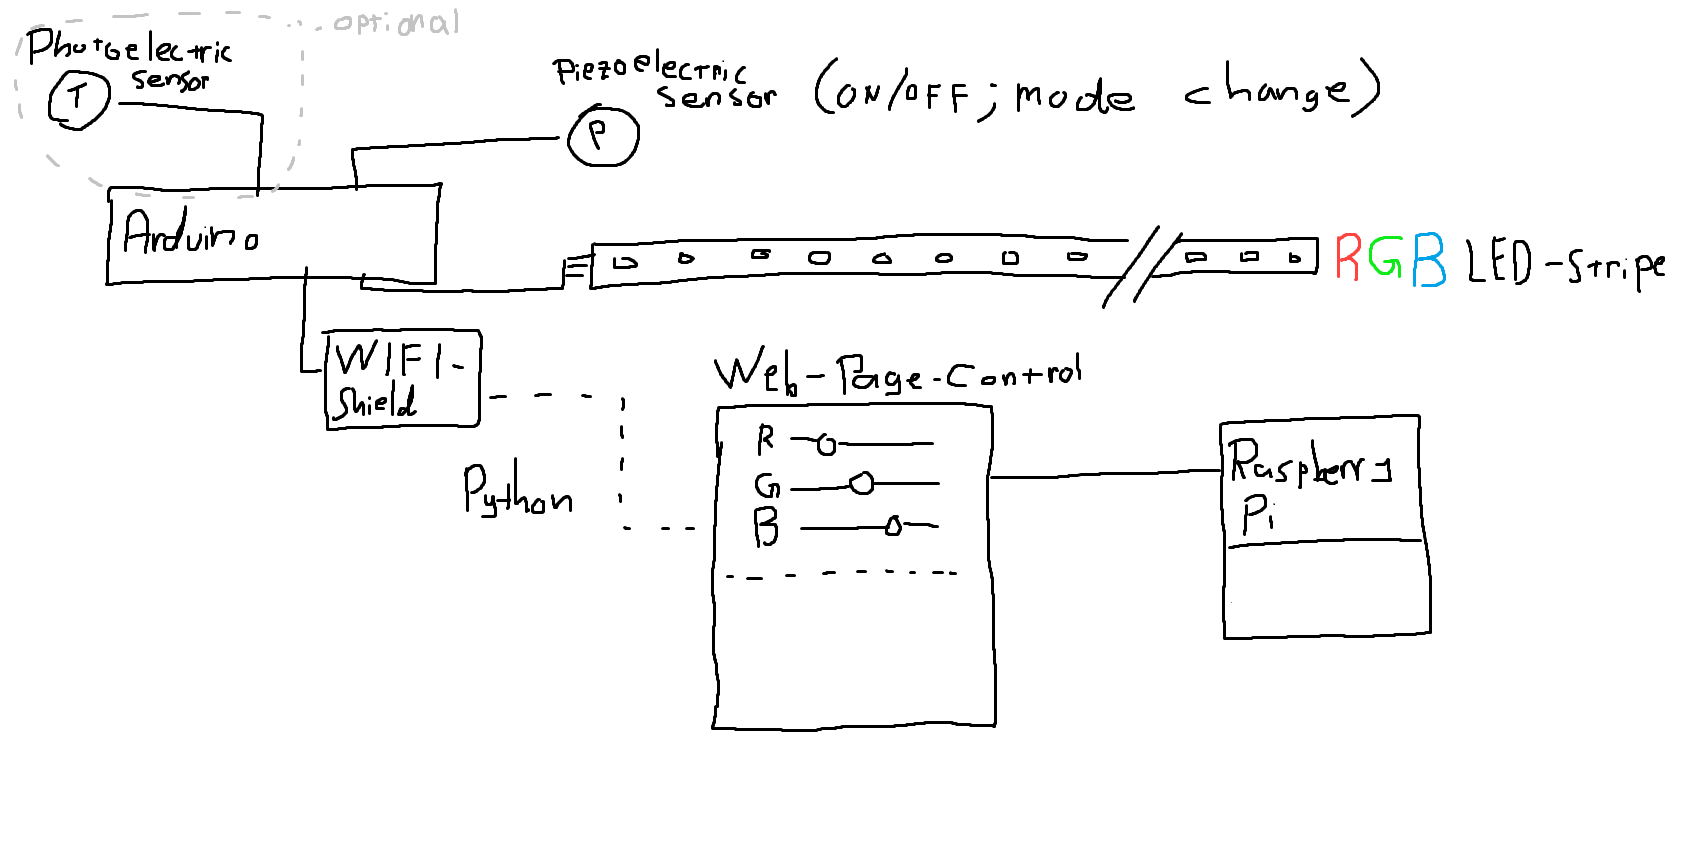 optional
Photoelectric
sensor
T
Piezoelectric
sensor (ON/OFF; mode change)
P
Arduino
RGB LED-Stripe
WIFI-
Shield
Web-Page-Control
R
G
B
Python
Raspberry
Pi